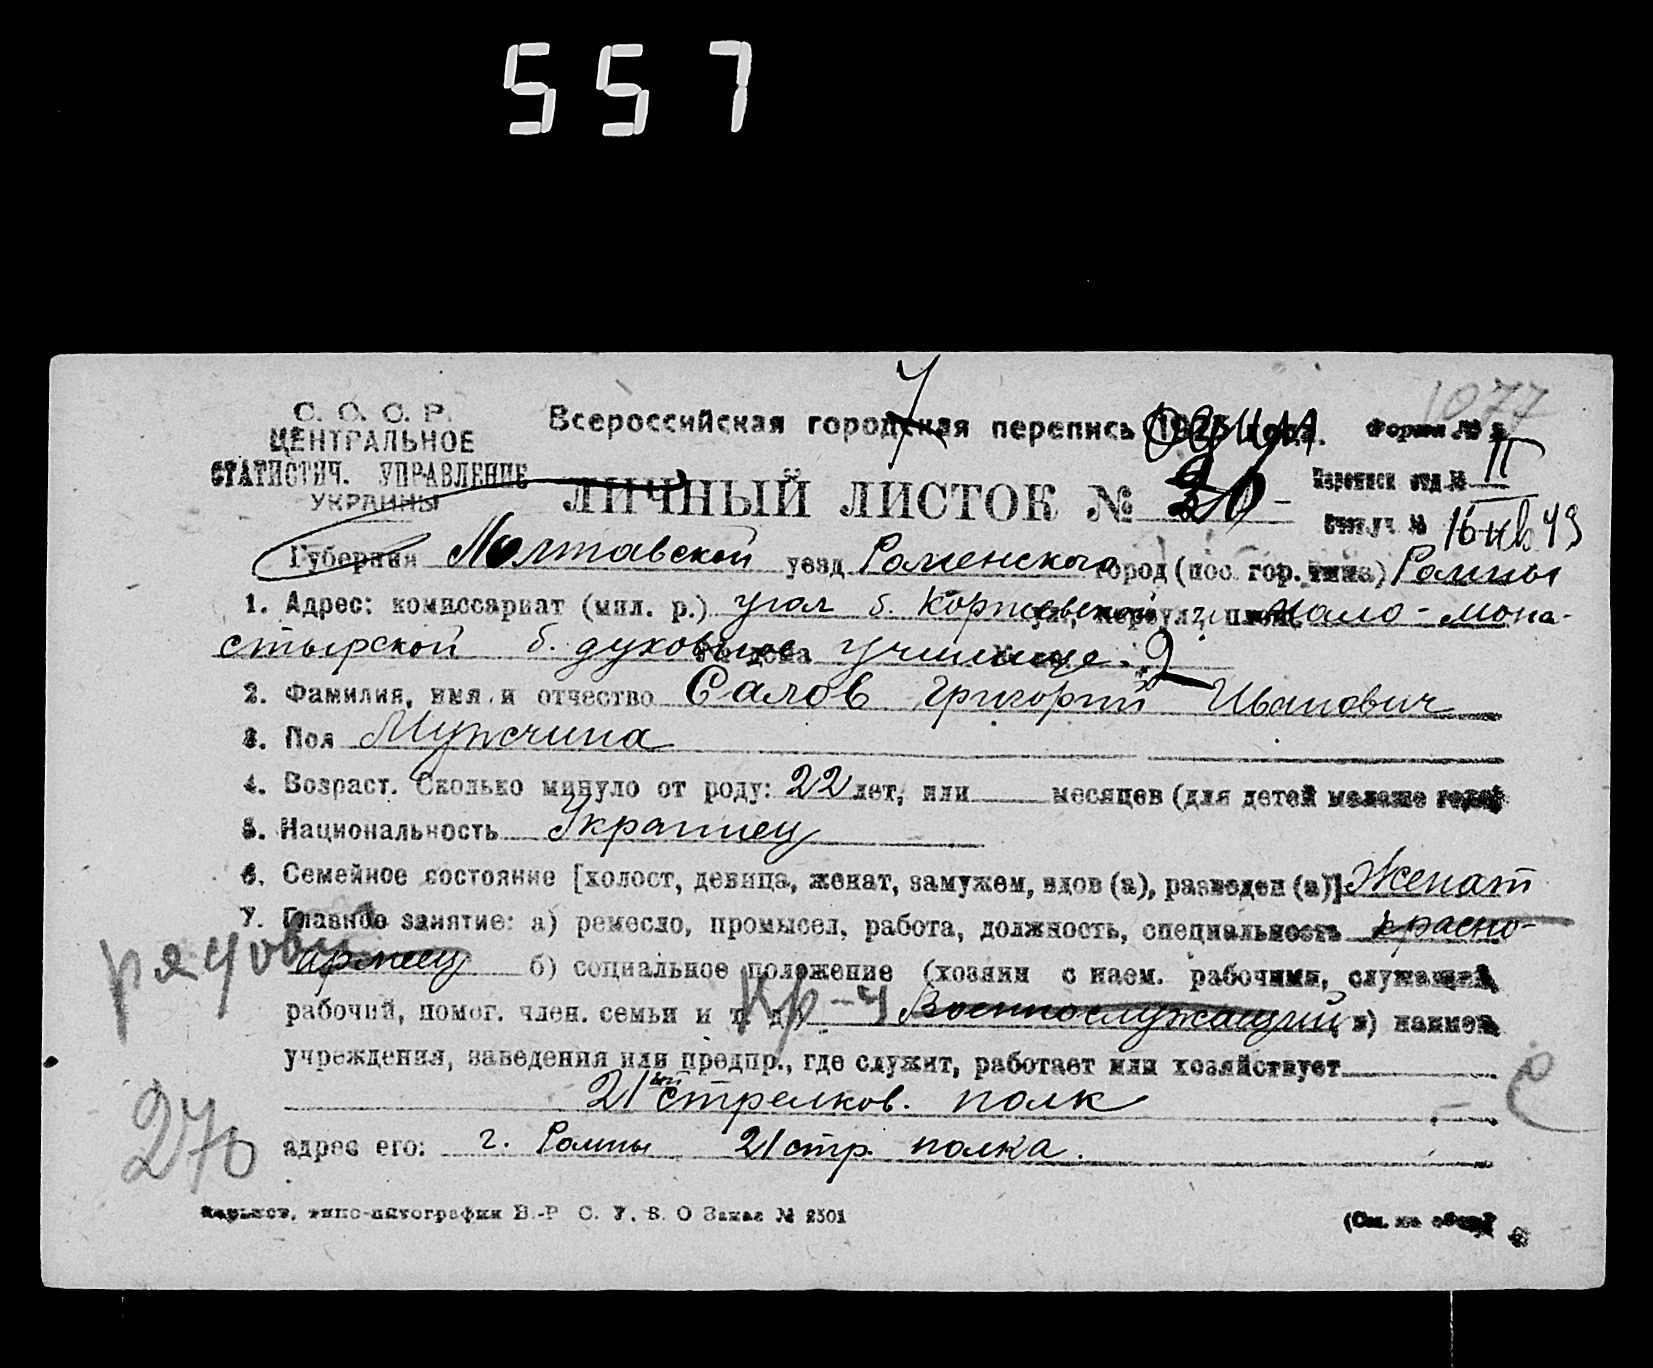 557
1077
С. С. С. Р.
ЦЕНТРАЛЬНОЕ
СТАТИСТИЧ. УПРАВЛЕНИЕ
УКРАИНЫ
Всероссийская городская перепись Форма №
Переписн отд № II
ЛИЧНЫЙ ЛИСТОК №
Счет.уч. № 16
Губерния Полтавской уезд Роменского город (пос. гор. типа) Ромны
1. Адрес: комиссариат (мил. р.) угол б. Коржевской и Мало-мона-
стырской б. духовное училище. 2
2. Фамилия, имя и отчество Салов Григорий Иванович
3. Пол Мужчина
4. Возраст. Сколько минуло от роду: 22 лет, или месяцев (для детей моложе года)
5. Национальность Украинец
6. Семейное состояние [холост, девица, женат, замужем, вдов (а), разведен (а)] Женат
7. Главное занятие: а) ремесло, промысел, работа, должность, специальность красно-
рядовой
армеец б) социальное положение (хозяин с наем. рабочими, служащий,
рабочий, помог. член. семьи и т. д.) Кр-н Военнослужащий в) наимен.
учреждения, заведения или предпр., где служит, работает или хозяйствует
21ый стрелков. полк
адрес его: г. Ромны 21 стр. полка.
Харьков, типо-литография В.-Р. С. У. В. О Заказ № 2501
(См. на обор.)